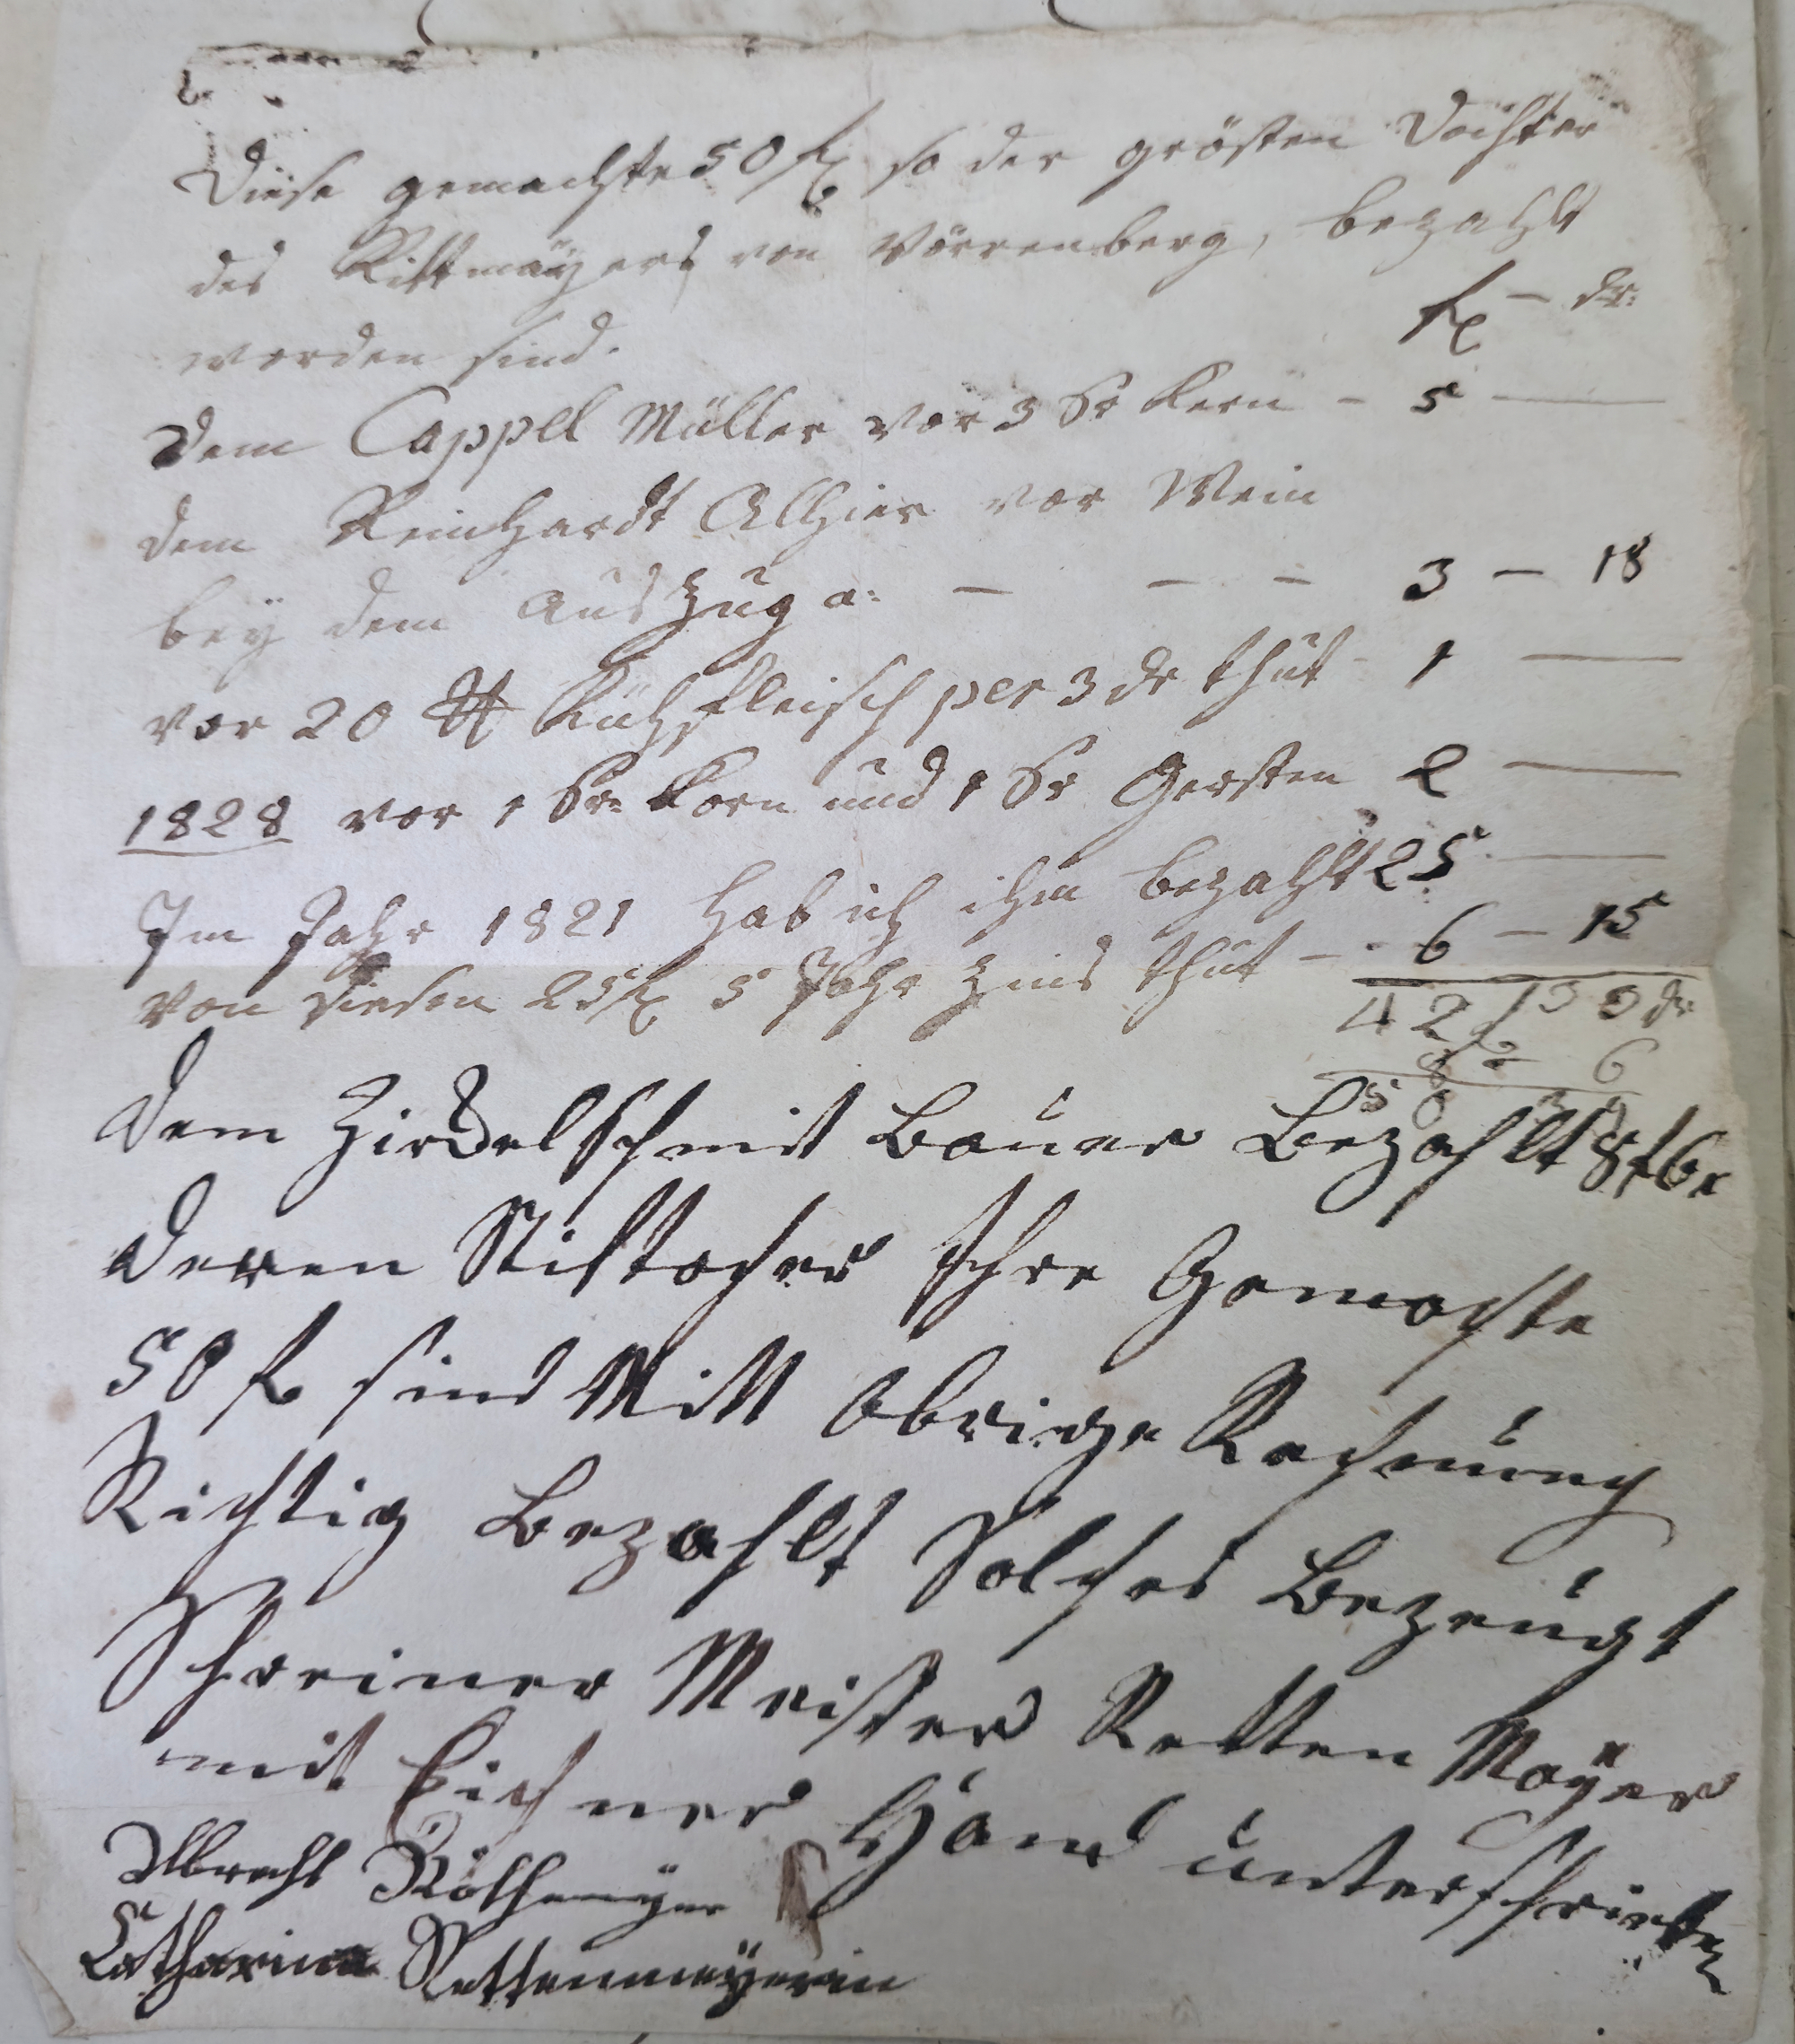 Diese gemachte 50 f so der grösten Dochter
des Rittmäyers von Vörrenberg, bezahlt
worden sind.
f – xr:
Dem Cappel Müller vor 3 Sr Kern – 5 —
dem Reinhardt Alhier vor Wein
bey dem Auszug a: – – – 3 – 18
vor 20 ℔ Kühfleisch per 3 xr thut – 1 —
1828 vor 1 Sr: Korn und 1 Sr Gersten 2 —
Im Jahr 1821 hab ich ihm bezahlt 25 —
von diesen 25 f 5 Jahr Zins thut – 6 – 15
42 f 33 xr
8 6
Dem Bauer Bezahlt 8 f 6 x
Deren Ihre Gemachte
50 f sind Mitt Obrige Rechnung
Richtig Bezahlt Solches Bezeugt
Schreiner Meister Retten Mayer
mit Eichner Hand unterschrieben
Albrecht
Catharina Rettenmeyerin